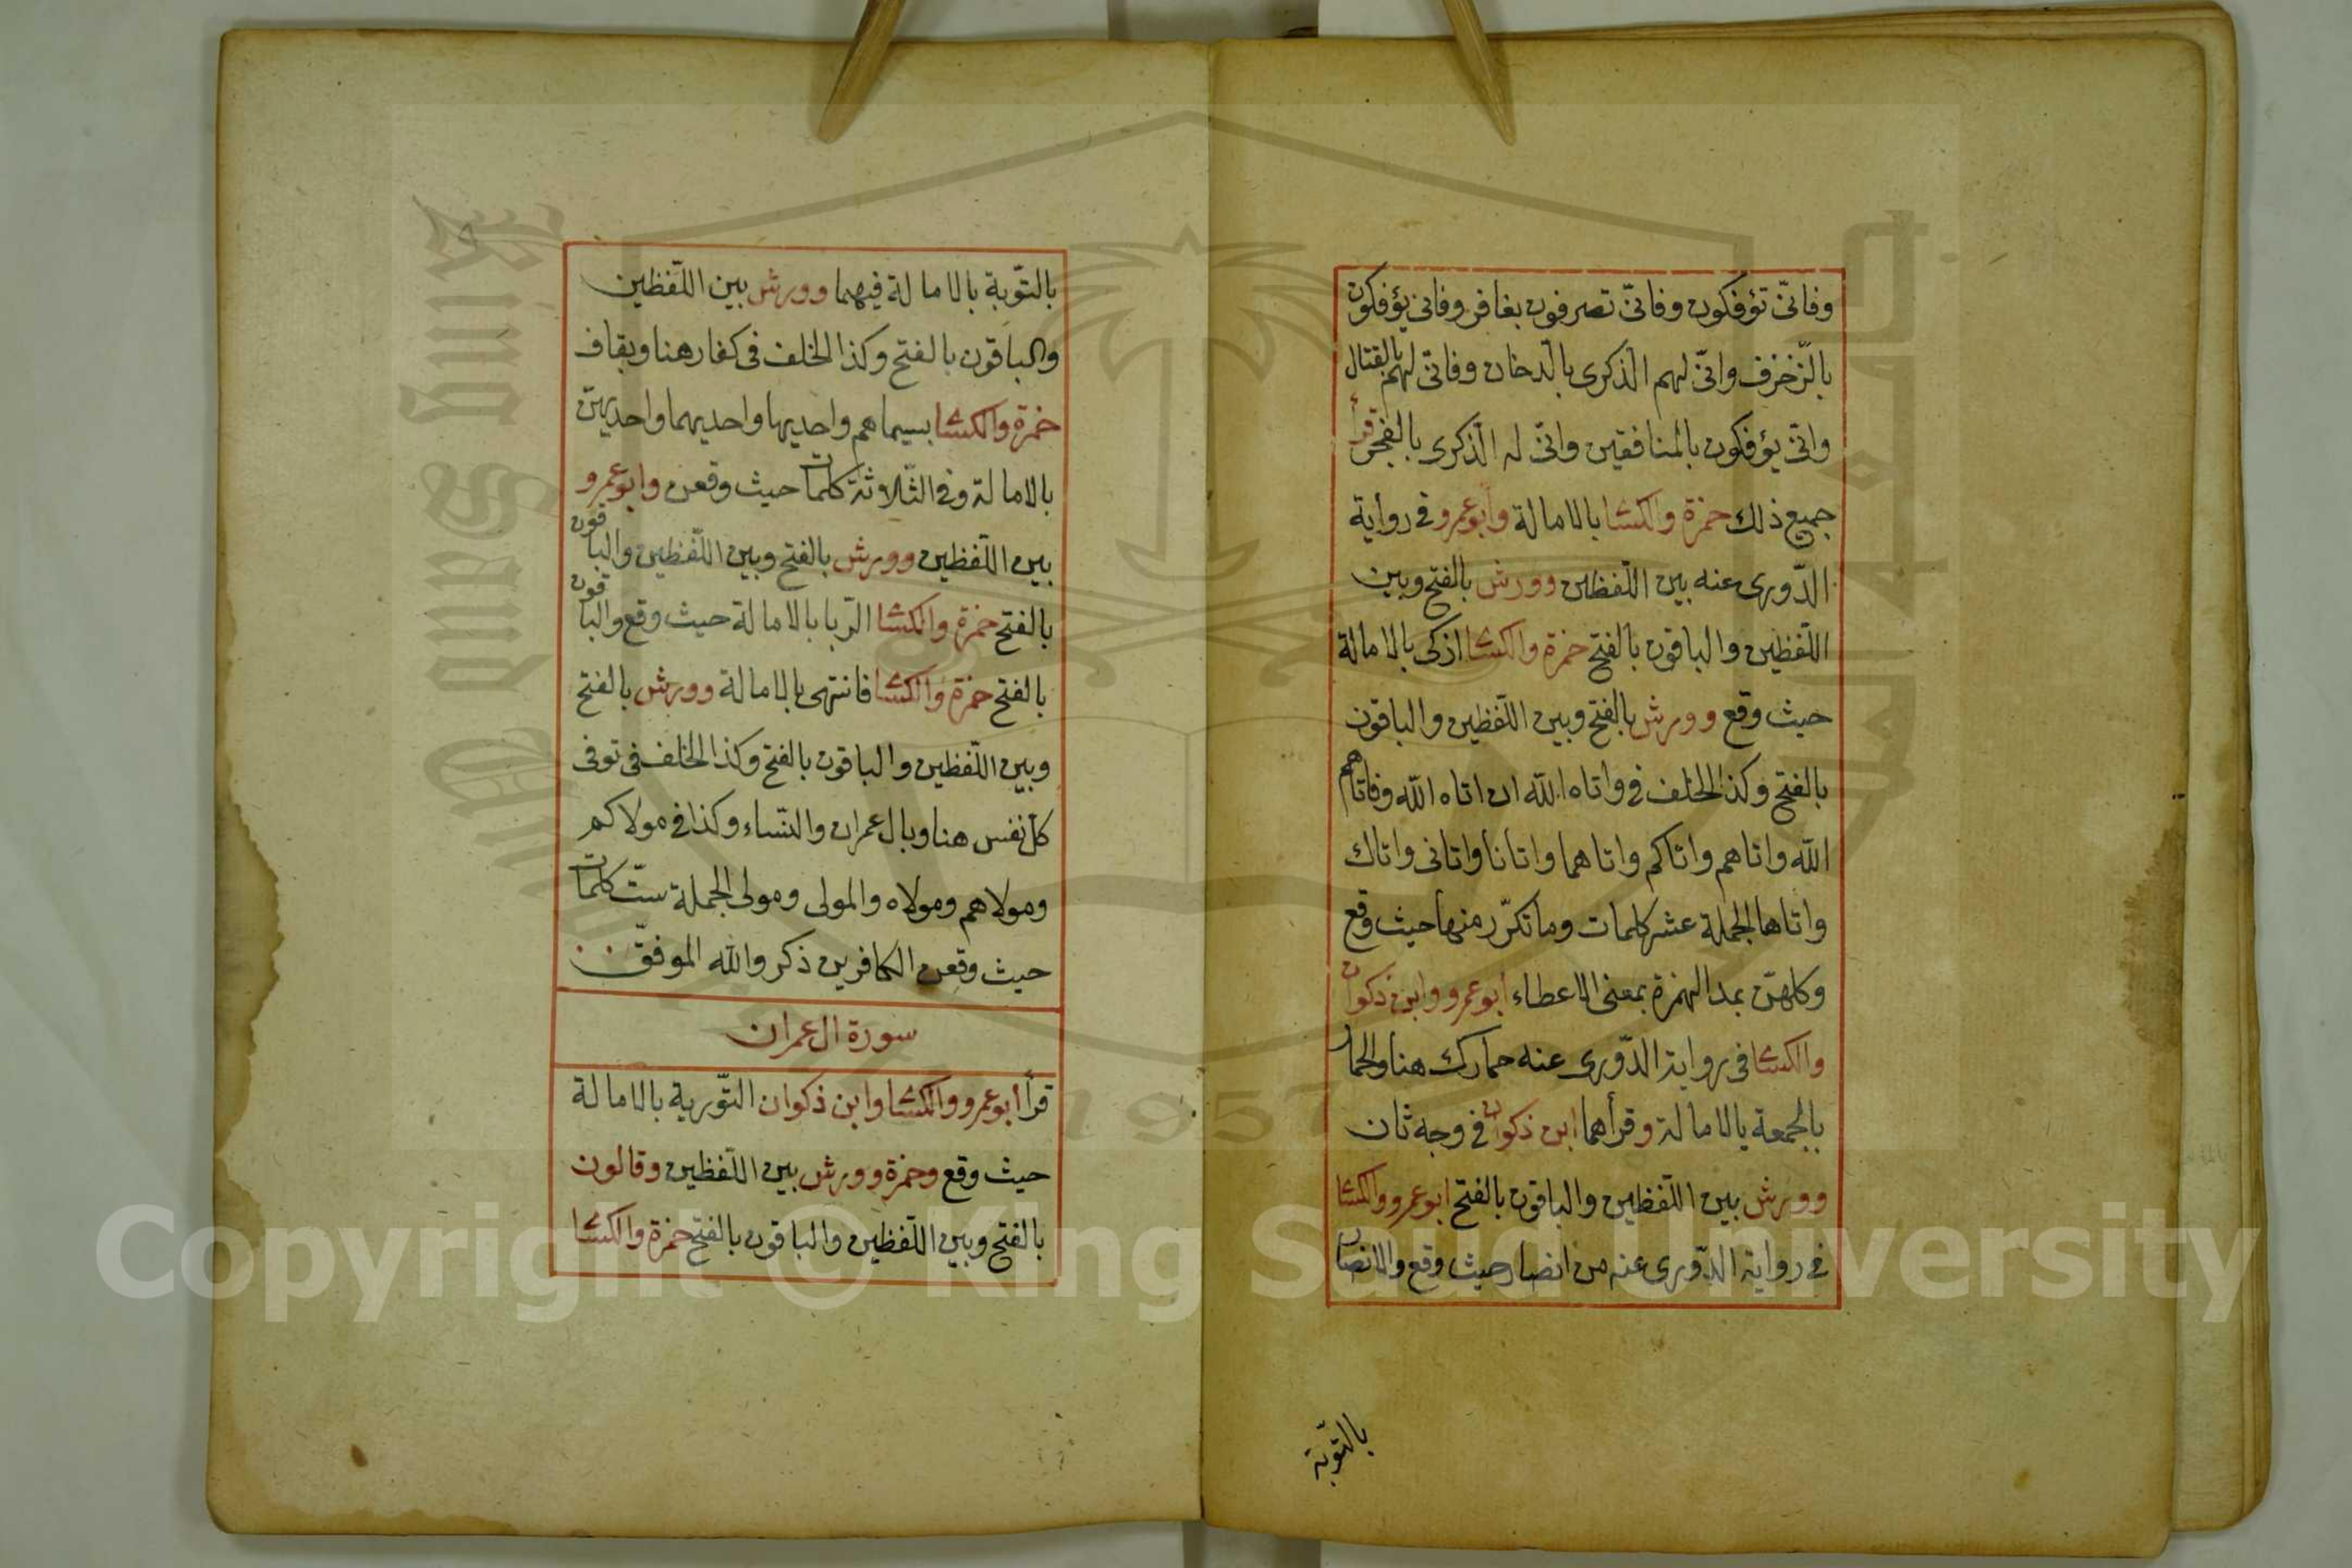 وفانّى تؤفكون وفانّى تصرفون بغافر وفانى يؤفكون
بالّزخرف وانّى لهم الذكرى بالّدخان وفانّى لهم بالقتال
وانّى يؤفكون بالمنافقين وانّى له الّذكرى بالفجر قرأ
جميع ذلك حمزة والكسا بالامالة وابو عمرو فى رواية
الدّورى عنه بين اللّفظين وورش بالفتح وبين
اللّفظين والباقون بالفتح حمزة والكسا ازكى بالامالة
حيث وقع وورش بالفتح وبين اللّفظين والباقون
بالفتح وكذا الخلف فى واتاه الله ان اتاه الله وفاتاهم
الله واتاهم واتاكم واتاهما واتانا واتانى واتاك
واتاها الجملة عشر كلمات وما تكرّر منها حيث وقع
وكلهنّ بمد الهمزة بمعنى الاعطاء ابو عمرو وابن ذكوان
والكسا فى رواية الدّورى عنه حمارك هنا والحمار
بالجمعة بالامالة وقرأهما ابن ذكوان فى وجه ثان
وورش بين اللّفظين والباقون بالفتح ابو عمرو والكسا
فى رواية الدّورى عنه من انصار حيث وقع والانصار
بالتّوبة
بالتّوبة بالامالة فيهما وورش بين اللّفظين
والباقون بالفتح وكذا الخلف فى كفار هنا وبقاف
حمزة والكسا بسيماهم واحديها واحديهما واحديهنّ
بالامالة وفى الثّلاثة كلمات حيث وقعن وابو عمرو
بين اللّفظين وورش بالفتح وبين اللّفظين والباقون
بالفتح حمزة والكسا الرّبا بالامالة حيث وقع والباقون
بالفتح حمزة والكسا فانتهى بالامالة وورش بالفتح
وبين اللّفظين والباقون بالفتح وكذا الخلف فى توفى
كل نفس هنا وبال عمران والنّساء وكذا فى مولاكم
ومولاهم ومولاه والمولى ومولى الجملة ستّ كلمات
حيث وقعن الكافرين ذكر والله الموفّق
سورة ال عمران
قرأ ابو عمرو والكسا وابن ذكوان التّورية بالامالة
حيث وقع وحمزة وورش بين اللّفظين وقالون
بالفتح وبين اللّفظين والباقون بالفتح حمزة والكسا
Copyright © King Saud University
1957